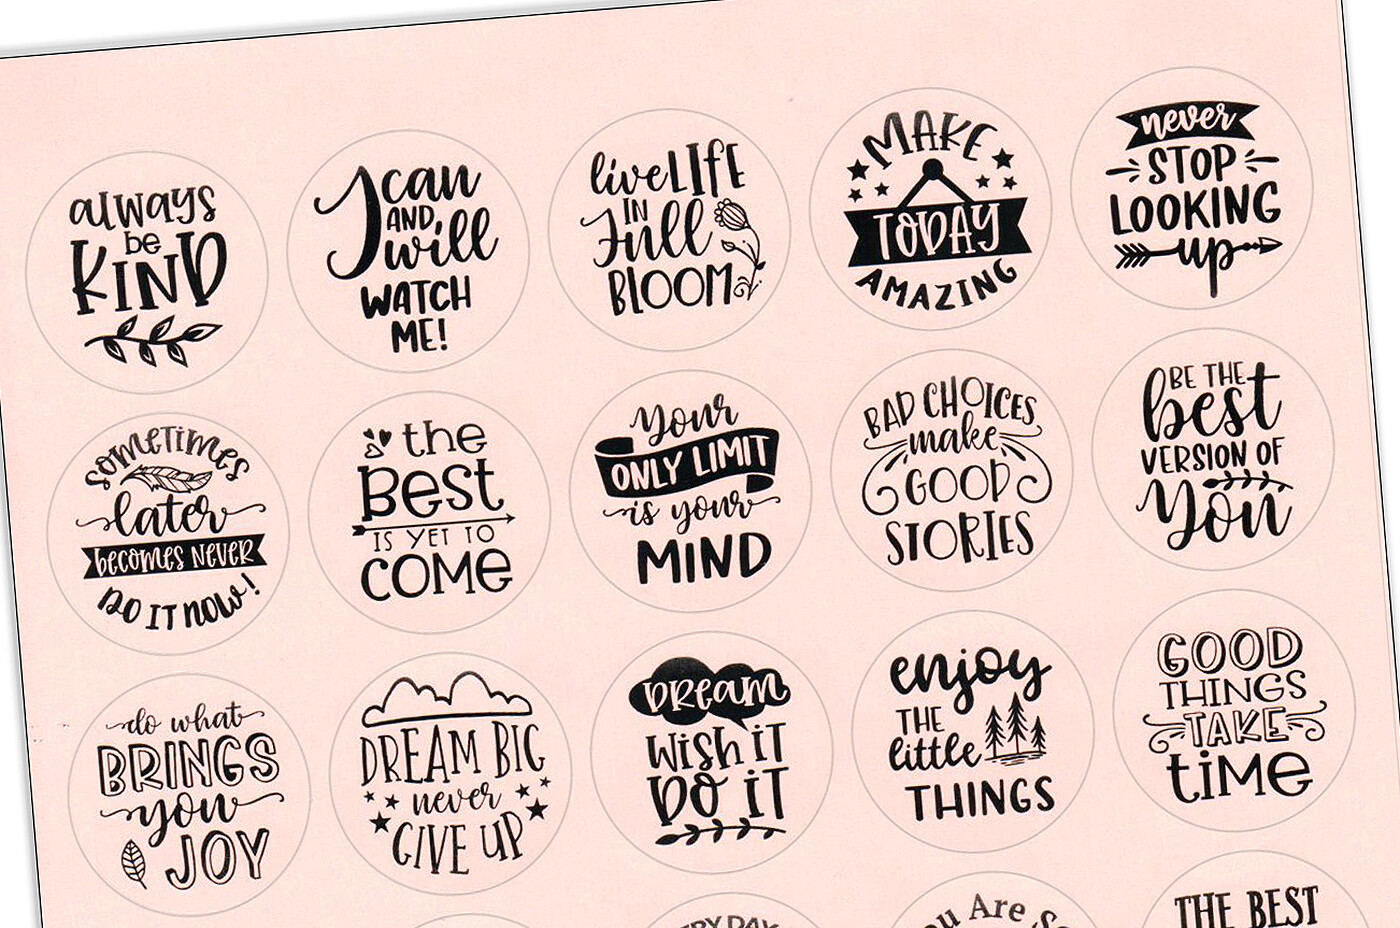 always
be
KIND
I can
AND
will
WATCH
ME!
live LIfE
IN
Full
BLOOM
MAKE
TODAY
AMAZING
never
STOP
LOOKING
up
sometimes
later
becomes never
DO IT NOW!
the
Best
IS YET TO
COMe
Your
ONLY LIMIT
is your
MIND
BAD CHOICES
make
GOOD
STORIES
BE THE
best
VERSION OF
You
do what
BRINGS
you
JOY
DREAM BIG
never
GIVE UP
DReam
WisH iT
DO iT
enjoy
THE
little
THINGS
GOOD
THINGS
TAKE
tiMe
DAY
Are
THE BEST